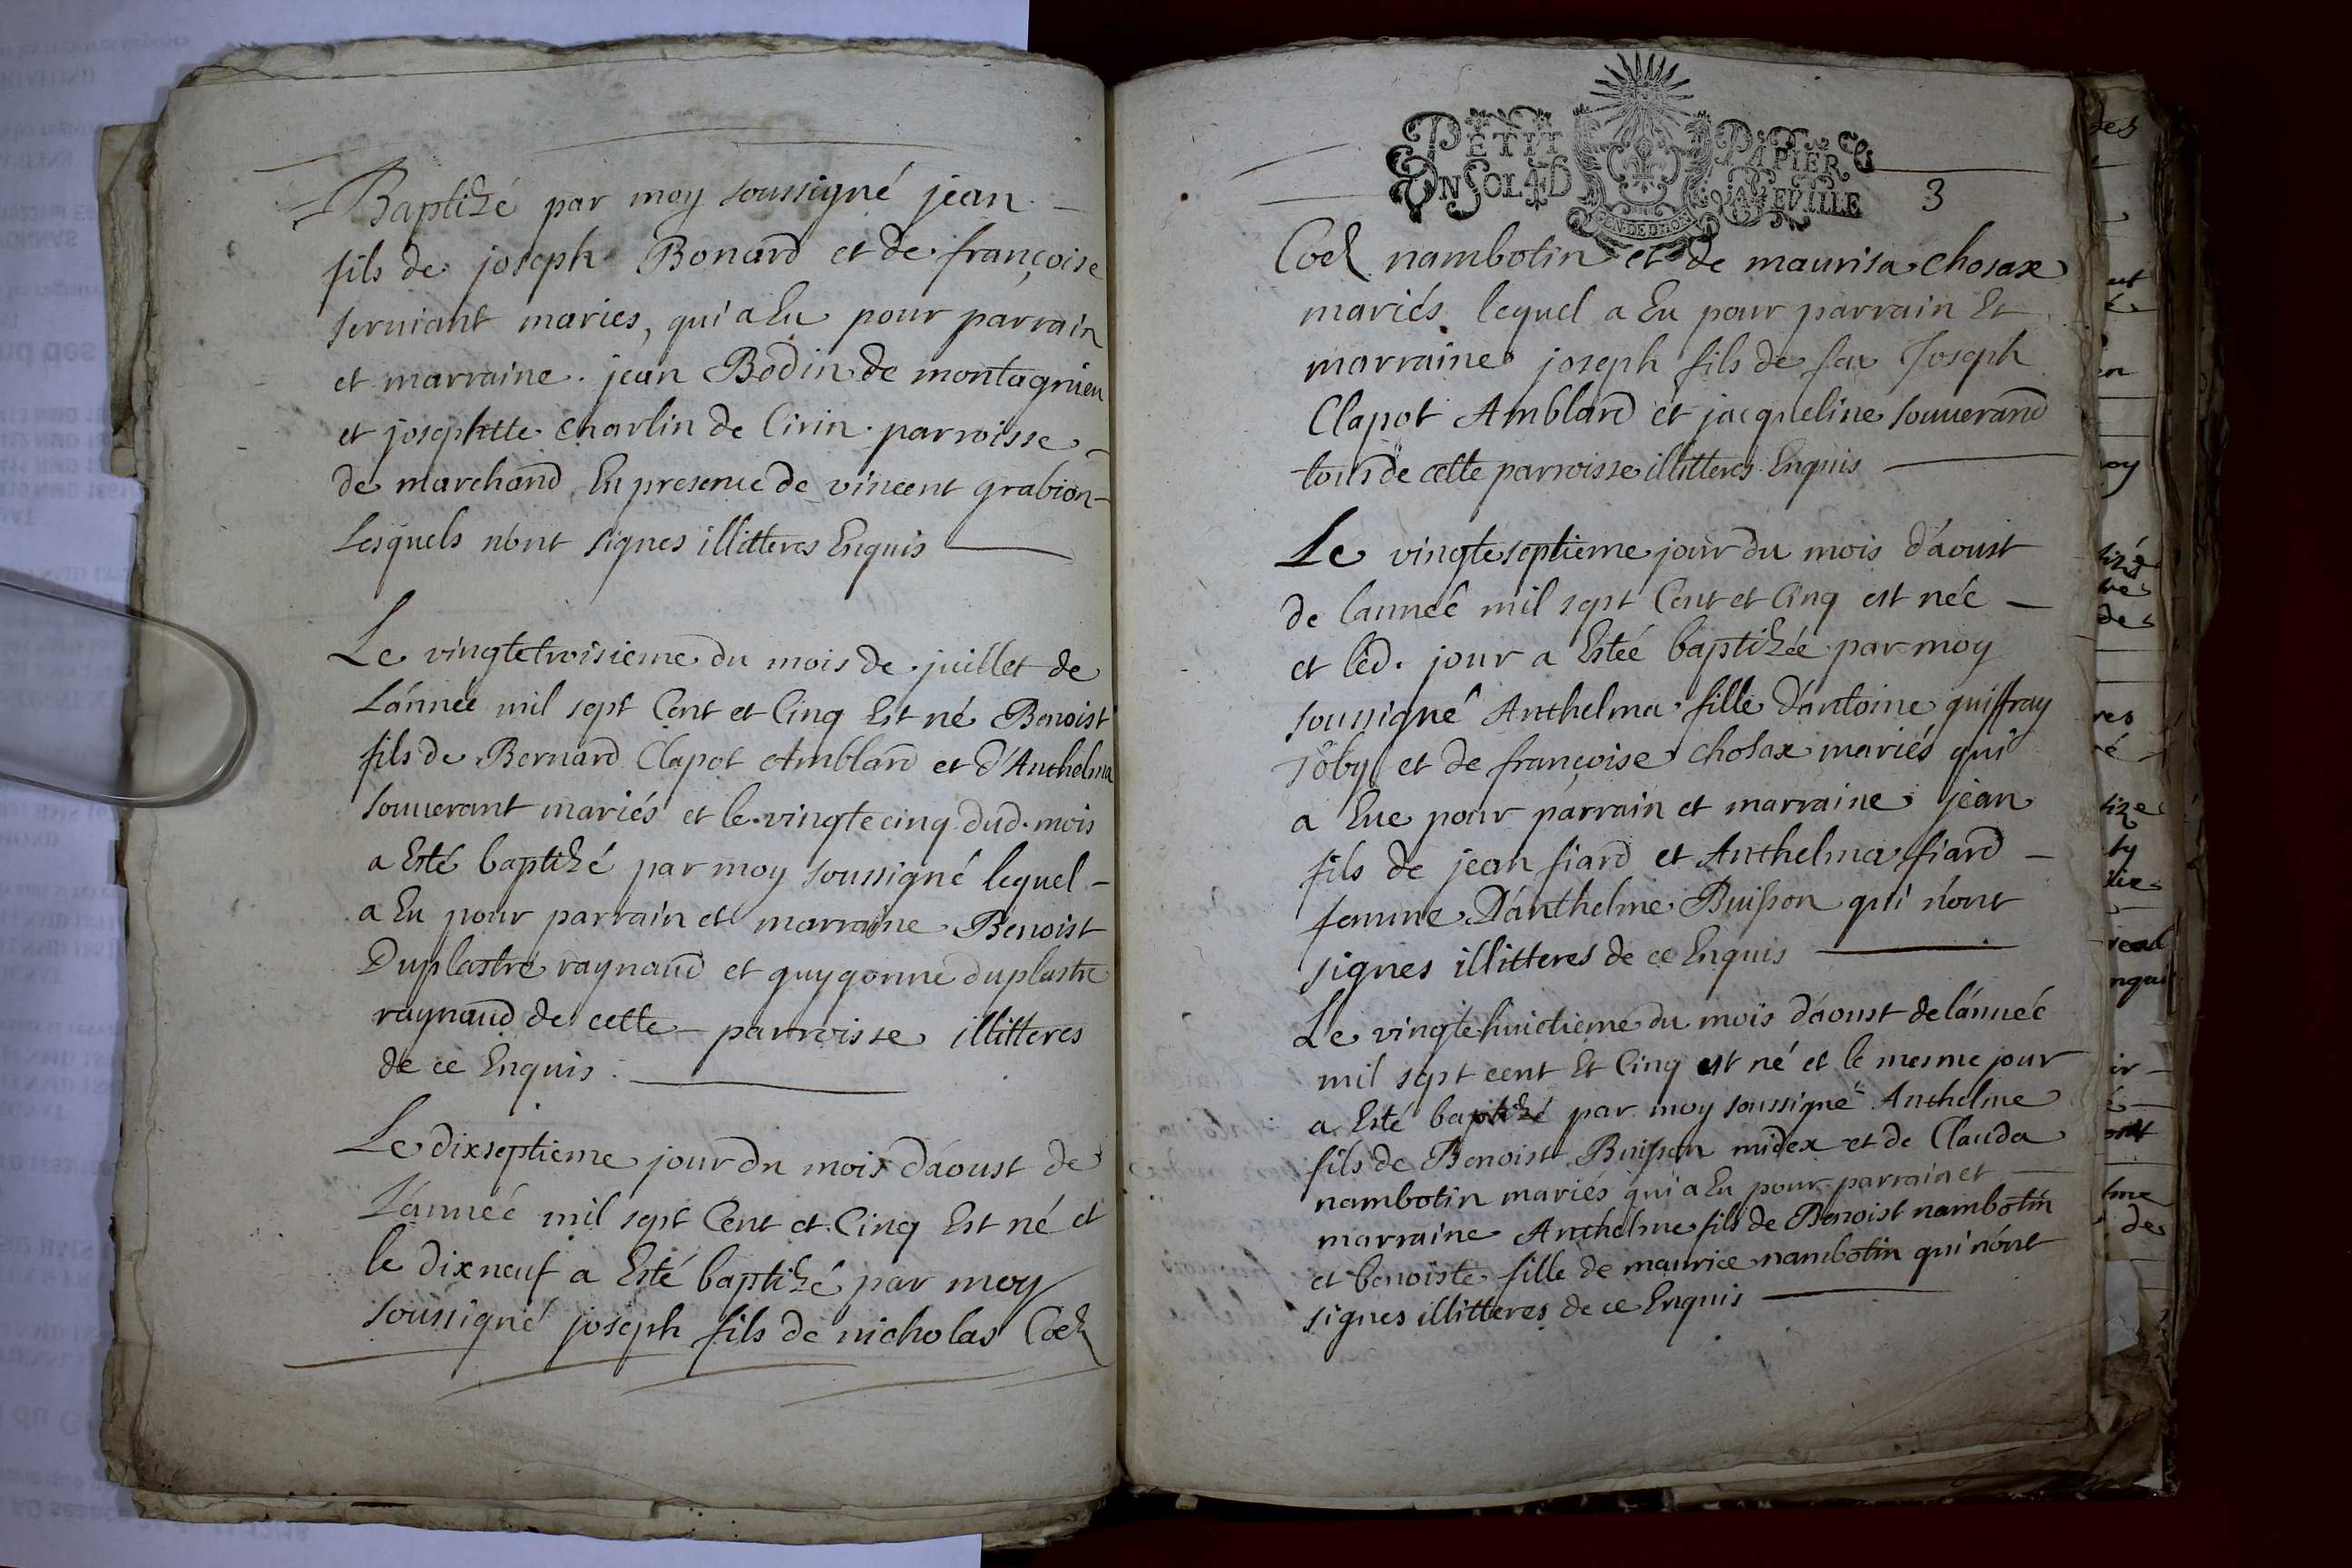 Baptizé par moy soussigné jean
fils de joseph Bonard et de françoise
seruiant maries, qui a Eu pour parrain
et marraine. jean Bodin de montagnieu
et josephtte charlin de Cirin. parroisse
de marchand En presence de vincent grabion
Lesquels n'ont signes illitteres Enquis
Le vingtetroisieme du mois de juillet de
L'année mil sept Cent et Cinq Est né Benoist
fils de Bernard Clapot Amblard et d'Anthelma
souuerant mariés et le vingtecinq dud. mois
a Esté baptizé par moy soussigné lequel
a Eu pour parrain et marraine Benoist
Duplastre raynaud et guygonne duplastre
raynaud de cette parroisse illitteres
de ce Enquis.
Le dixseptieme jour du mois d'aoust de
L'anneé mil sept Cent et Cinq Est né et
le dixneuf a Esté baptizé par moy
soussigné joseph fils de nicholas
PETIT PAPIER
UN SOL 4 D LA FEVILLE
3
nambotin et de maurisa chosax
mariés lequel a Eu pour parrain Et
marraine joseph fils de feu Joseph
Clapot Amblard et jacqueline souuerand
touts de cette parroisse illitteres Enquis
Le vingteseptieme jour du mois d'aoust
de l'anneé mil sept Cent et Cinq est née
et led. jour a Estée baptizée par moy
soussigné Anthelma fille d'antoine guiffray
Toby et de françoise chosax mariés qui
a Eue pour parrain et marraine jean
fils de jean fiard et Anthelma fiard
femme D'anthelme Buisson qui n'ont
signes illitteres de ce Enquis
Le vingtehuictieme du mois d'aoust de l'anneé
mil sept cent Et Cinq est né et le mesme jour
a Esté baptizé par moy soussigné Anthelme
fils de Benoist Buisson midex et de Clauda
nambotin mariés qui a Eu pour parrain et
marraine Anthelme fils de Benoist nambotin
et benoiste fille de maurice nambotin qui n'ont
signes illitteres de ce Enquis